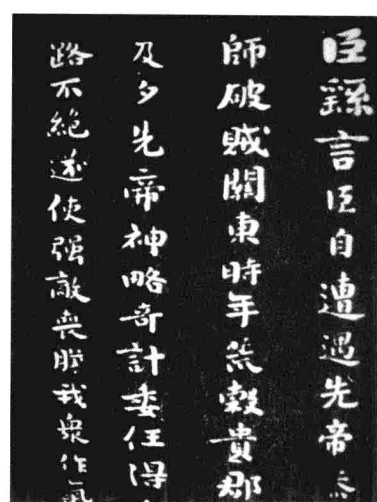 臣繇言臣自遭遇先帝忝
師破賊關東時年荒穀貴郡
及夕先帝神略奇計委任得
路不絕遂使强敵喪膽我衆作氣